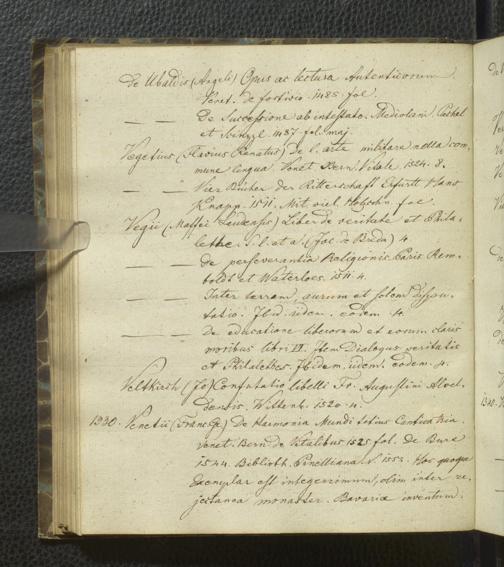 De Ubaldis (Angeli) Opus ac lectura Autenticorum
Venet. de fortivio. 1485. fol.
— — De Successione ab intestato. Mediolani. Pachel
et Scinzzel. 1487. fol. maj.
Vegetius (Flavius Renatus) De l'arte militare nella com-
mune lingua. Venet. Bern. Vitale 1524. 8.
— — Vier Bücher der Ritterschaft Erfurtt Hans
Knapp. 1511. Mit viel Holzschn. fol.
Vegii (Maffei Laudensis) Liber de veritate et Phila-
lethe. S. l. et a. (Jac. de Breda) 4.
— — De perseverantia Religionis. Paris. Rem-
boldt et Waterloes. 1511. 4.
— — Inter terram, aurum et solem Disputa-
tatio. Ibid. iidem. eodem. 4.
— — De educatione liberorum et eorum claris
moribus libri VI. Item Dialogus veritatis
et Philalethes. Ibidem. iidem. eodem. 4.
Veltkirch (Jo) Confutatio libelli Fr. Augustini
densis. Wittenb. 1520. 4.
1330. Venetii (Francsci) De Harmonia Mundi totius Cantica tria.
Venet. Bern. de Vitalibus 1525 fol. De Bure
1544. Biblioth. Pinelliana. 1553. Hoc quoque
Exemplar est integerrimum, olim inter re-
jectanea monaster. Bavariæ inventum.